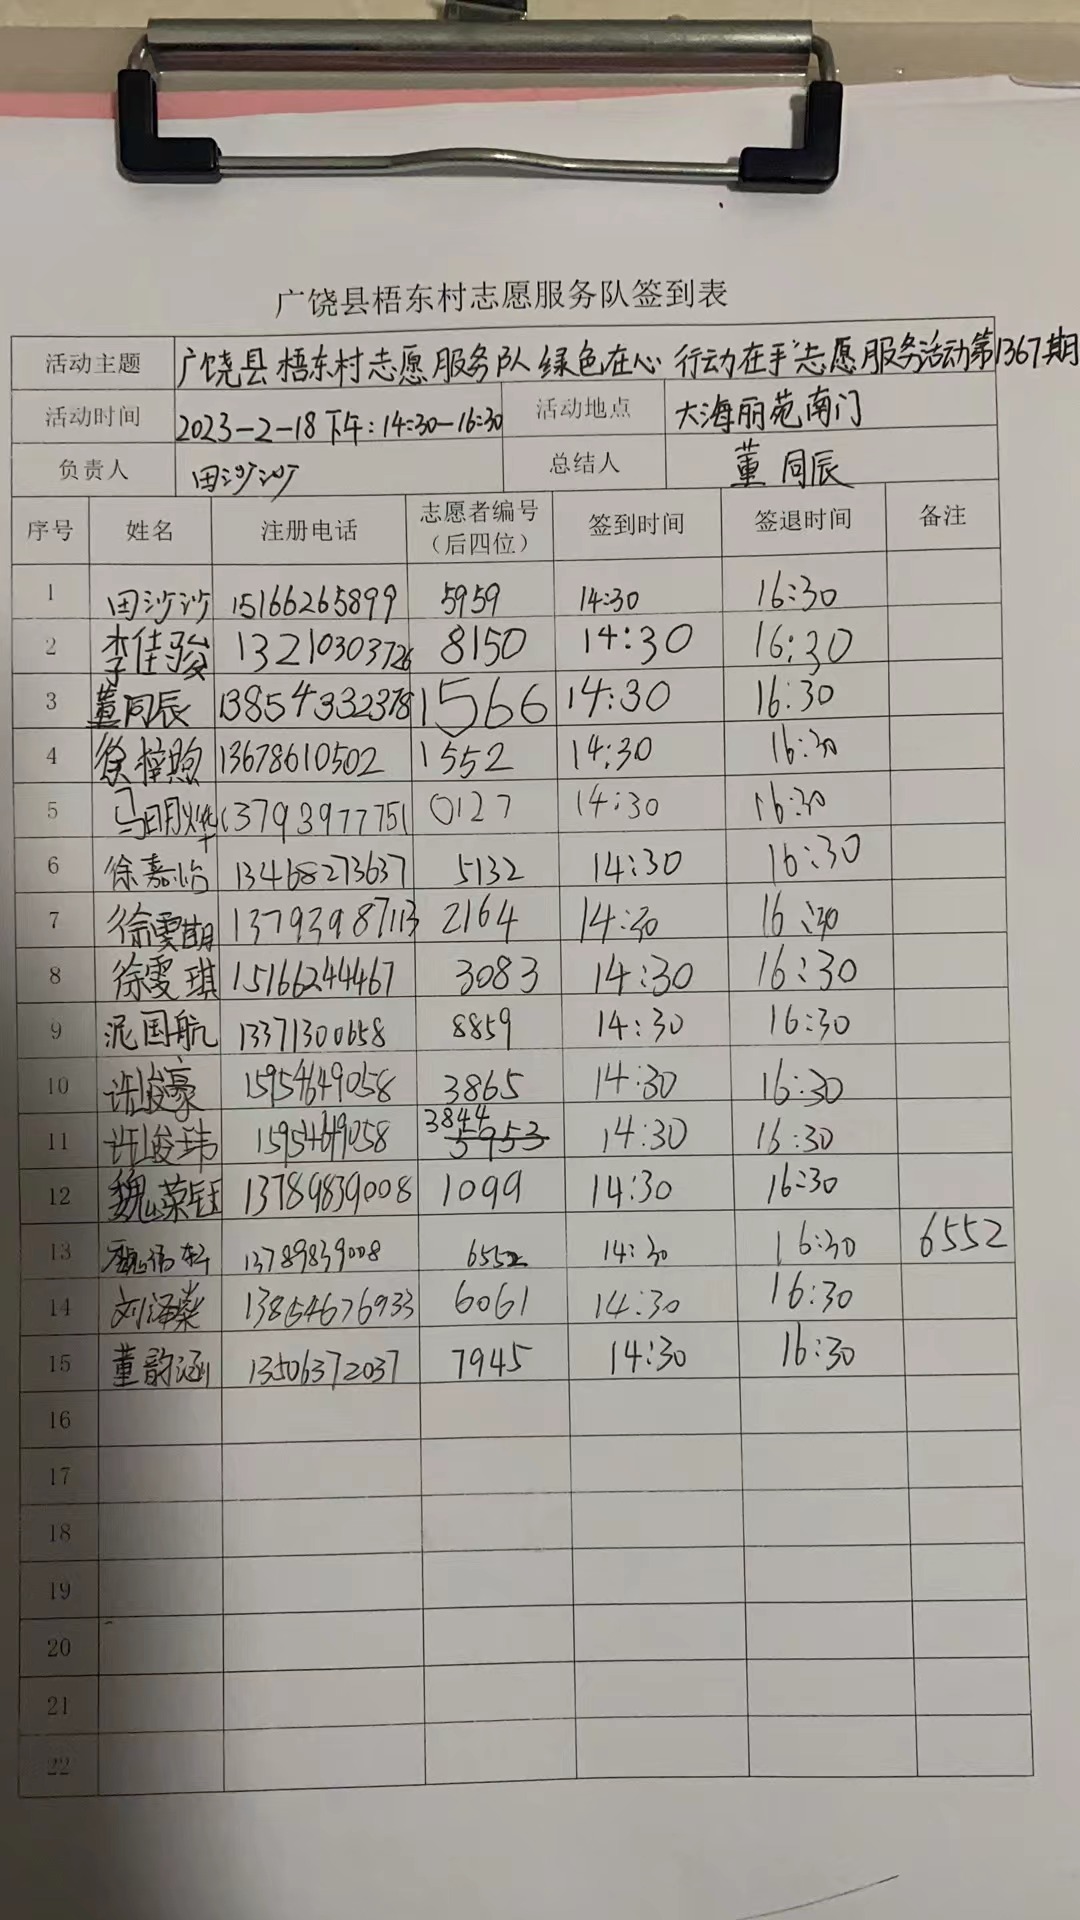 广饶县梧东村志愿服务队签到表
活动主题 广饶县梧东村志愿服务队绿色在心 行动在手"志愿服务活动第1367期
活动时间 2023-2-18下午:14:30-16:30 活动地点 大海丽苑南门
负责人 田沙沙 总结人 董同辰
序号 姓名 注册电话 志愿者编号（后四位） 签到时间 签退时间 备注
1 田沙沙 15166265899 5959 14:30 16:30
2 李佳骏 13210303726 8150 14:30 16:30
3 董同辰 13854332378 1566 14:30 16:30
4 徐梓煦 13678610502 1552 14:30 16:30
5 马明烨 13793977751 0127 14:30 16:30
6 徐嘉怡 13468273637 5132 14:30 16:30
7 徐雯期 13793987113 2164 14:30 16:30
8 徐雯琪 15166244467 3083 14:30 16:30
9 泥国航 13371300658 8859 14:30 16:30
10 许峻豪 15954649058 3865 14:30 16:30
11 许峻玮 15954649058 3844 5953 14:30 16:30
12 魏荣钰 13789839008 1099 14:30 16:30
13 魏 13789839008 6552 14:30 16:30 6552
14 刘泽燊 13854676933 6061 14:30 16:30
15 董韵涵 13506372037 7945 14:30 16:30
16
17
18
19
20
21
22